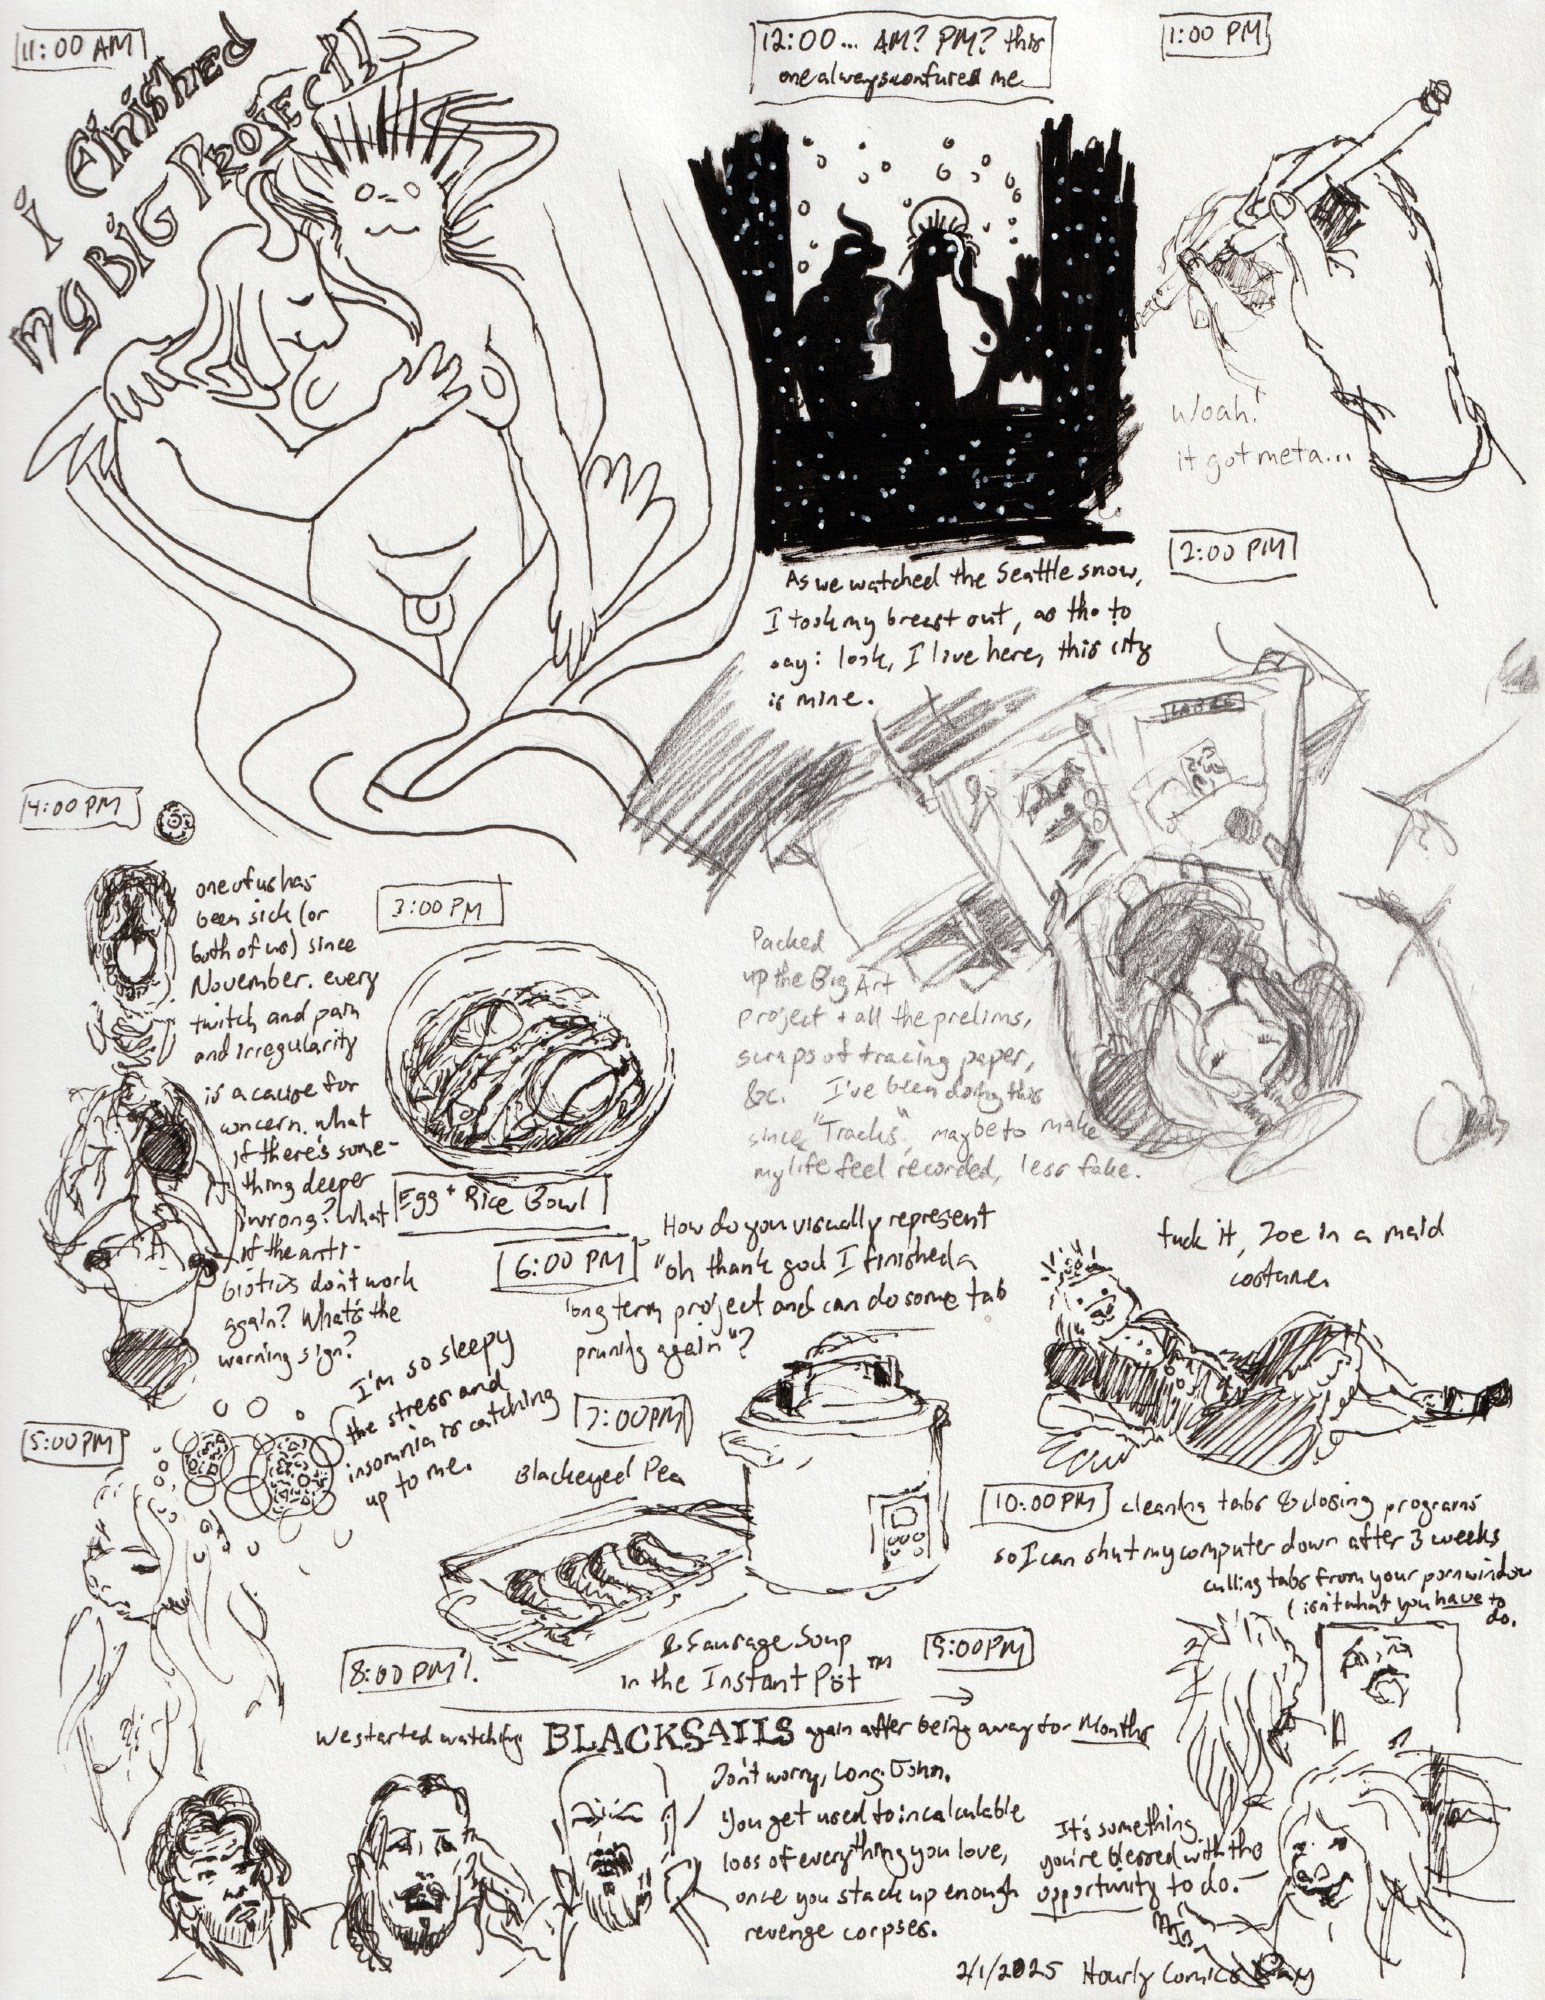 11:00 AM
i Finished
my BiG PROJECt!!
12:00... AM? PM? this
one always confuses me
As we watched the Seattle snow,
I took my breast out, as tho to
say: look, I live here, this city
is mine.
1:00 PM
Woah!
it got meta...
2:00 PM
Packed
up the Big Art
project + all the prelims,
scraps of tracing paper,
&c. I've been doing this
since "Tracks", maybe to make
my life feel recorded, less fake.
3:00 PM
Egg + Rice Bowl
4:00 PM
one of us has
been sick (or
both of us) since
November. every
twitch and pain
and irregularity
is a cause for
concern. what
if there's some-
thing deeper
wrong? What
if the anti-
biotics don't work
again? What's the
warning sign?
5:00 PM
I'm so sleepy
the stress and
insomnia is catching
up to me.
6:00 PM
How do you visually represent
"oh thank god I finished a
long term project and can do some tab
pruning again"?
fuck it, Zoe in a maid
costume.
7:00 PM
Blackeyed Pea
& Sausage Soup
in the Instant Pot™
8:00 PM
9:00 PM
We started watching BLACKSAILS again after being away for Months
Don't worry, Long John.
You get used to incalculable
loss of everything you love,
once you stack up enough
revenge corpses.
10:00 PM
cleaning tabs & closing programs
so I can shut my computer down after 3 weeks
culling tabs from your porn window
isn't what you have to
do.
It's something
you're blessed with the
opportunity to do.
2/1/2025 Hourly Comics Day